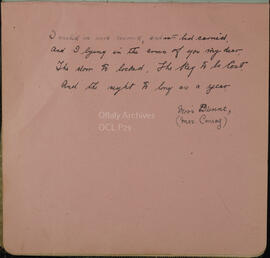 I wish we were married, and bed carried,
And I lying in the arms of you my dear
The door to locked, The Key to be lost
And the night to long as a year
Miss Dunne,
(Mrs Conroy)
Offaly Archives
OCL P29